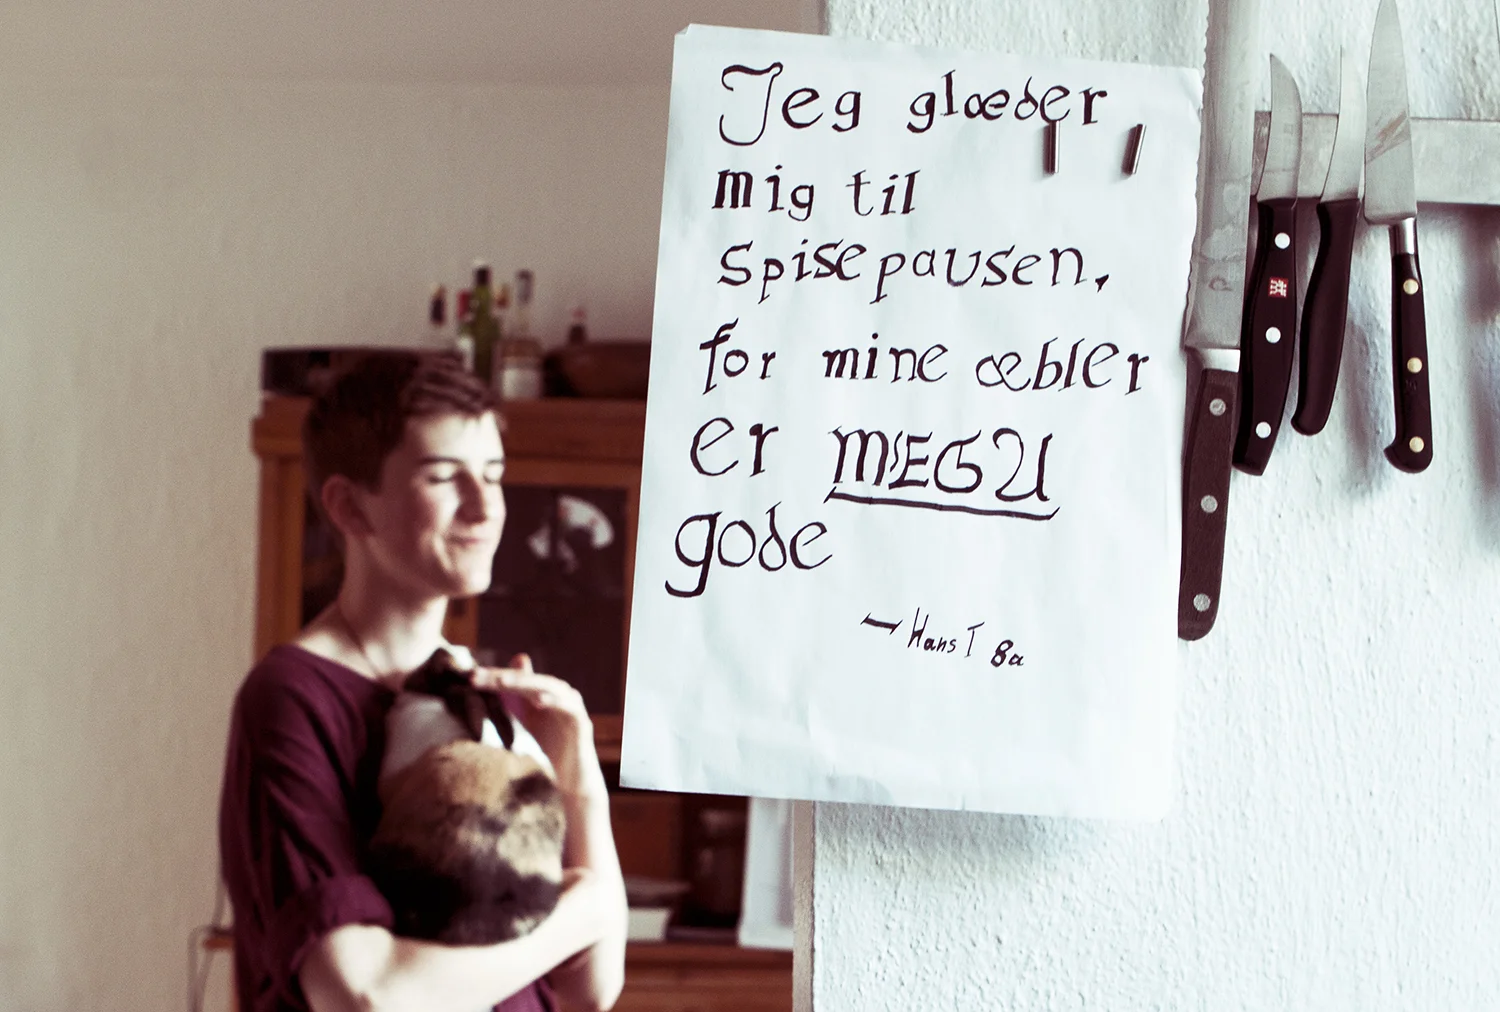 Jeg glæder
mig til
spisepausen,
for mine æbler
er MEGU
gode
— Hans T 8a